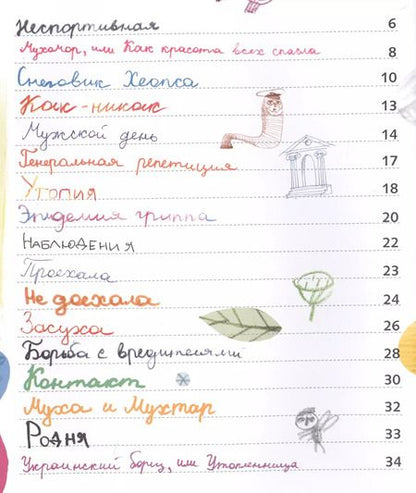 Неспортивная 6
Мухомор, или Как красота всех спасла 8
Снеговик Хеопса 10
Как-никак 13
Мужской день 14
Генеральная репетиция 17
Утопия 18
Эпидемия гриппа 20
Наблюдения 22
Проехала 23
Не доехала 24
Засуха 26
Борьба с вредителями 28
Контакт 30
Муха и Мухтар 32
Родня 33
Украинский борщ, или Утопленница 34